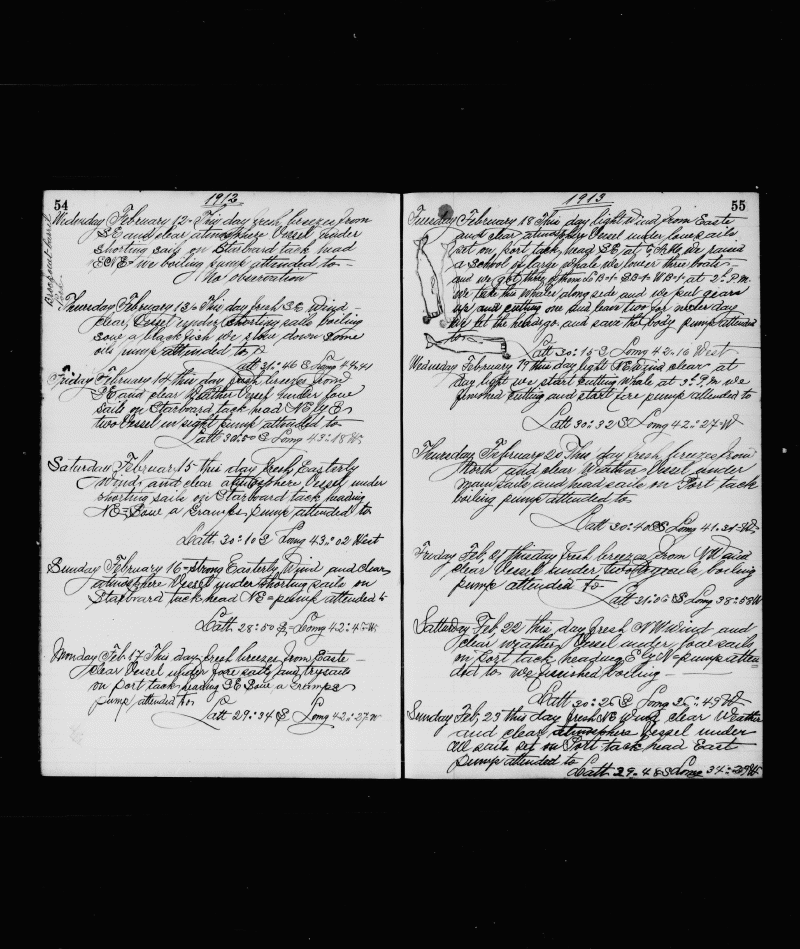 54
1912
Wednesday February 12 This day fresh breezes from
S.E and clear atmosphere Vessel under
shorting sails on Starboard tack head
E.N.E we boiling pump attended to
No observation
Thursday February 13 This day fresh S.E. Wind
clear, Vessel under shorting sails boiling
sow a blackfish we stow down some
oil pump attended to
Latt 31:46 S Long 44:41
Friday February 14 this day fresh breezes from
S.E and clear Weather Vessel under
sails on Starboard tack head NE by E
two Vessel in sight pump attended to
Latt 30:50 S Long 43:18 W
Saturday February 15 this day fresh Easterly
Wind, and clear atmosphere Vessel under
shorting sails on Starboard tack heading
NE Sow a Gramps, pump attended to
Latt 30:10 S Long 43:02 West
Sunday February 16 strong Easterly Wind and clear
atmosphere Vessel under shorting sails on
Starboard tack head NE pump attended to
Latt 28:50 S Long 42:47 W
Monday Feb. 17 This day fresh breezes from Easte
clear Vessel under sails and trysails
on port tack heading S.E Sow a Gramps
pump attended to
Latt 29:34 S Long 42:27 W
1913
55
Tuesday February 18 This day light Wind from Easte
and clear atmosphere Vessel under sails
set on port tack head S.E. at we raised
a School of large whale we lower three boats
and we got three of them S B-1 L B-1 W B-1 at 2 P.M.
We take this Whales along side and we put gears
up and cutting one and leave two for nexter day
We let the head go and save the body pump attended
to
Latt 30:15 S Long 42:16 West
Wednesday February 19 this day light NE Wind clear at
day light we start cutting Whale at 3 P.m we
finished cutting and start fire pump attended to
Latt 30:32 S Long 42:27 W
Thursday February 20 This day fresh breezes from
North and clear Weather Vessel under
main sails and head sails on Port tack
boiling pump attended to
Latt 30:40 S Long 41:31 W
Friday Feb, 21 this day fresh breezes from NW and
clear Vessel under boiling
pump attended to
Latt 31:06 S Long 38:58 W
Satturday Feb, 22 this day fresh N.W. Wind and
clear weather Vessel under sails
on Port tack heading E by N pump atten
ded to We finished boiling
Latt 30:26 S Long 36:49 W
Sunday Feb, 23 this day fresh NE Wind clear Weather
and clear atmosphere Vessel under
all sails set on Port tack head East
pump attended to
Latt 29.48 S Long 34:39 W